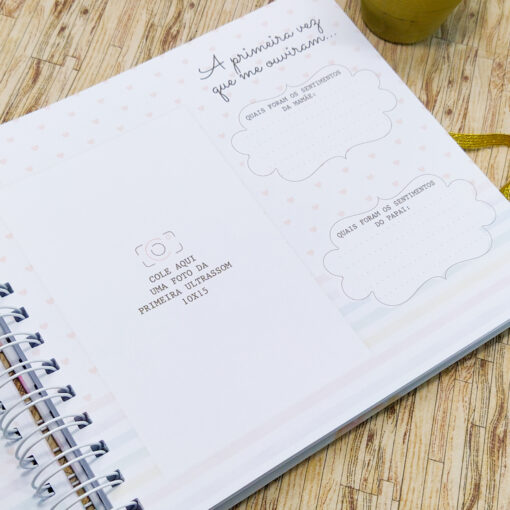 A primeira vez
que me ouviram...
QUAIS FORAM OS SENTIMENTOS
DA MAMÃE:
QUAIS FORAM OS SENTIMENTOS
DO PAPAI:
COLE AQUI
UMA FOTO DA
PRIMEIRA ULTRASSOM
10X15